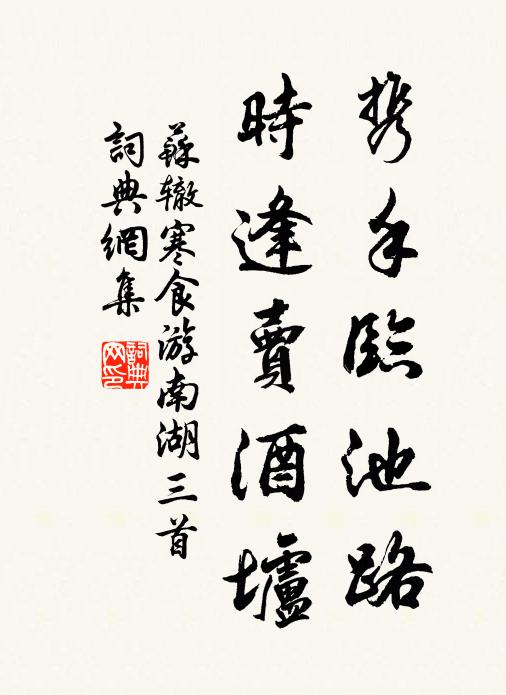 携手臨池路
時逢賣酒壚
蘇辙寒食游南湖三首
詞典網集
詞典網印